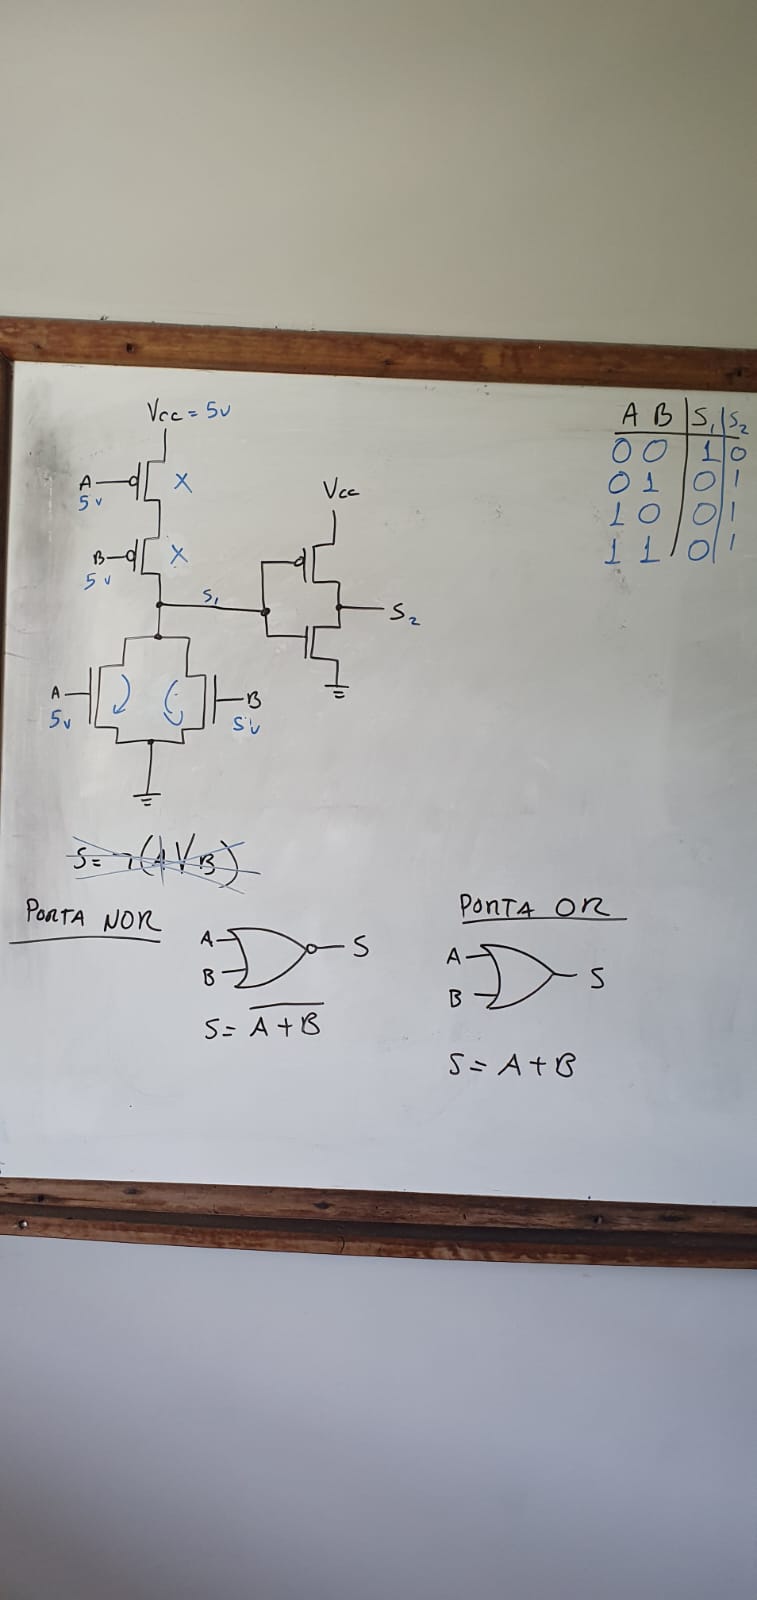 Vcc = 5v
A
5v
X
B
5v
X
S₁
Vcc
S₂
A
5v
B
5v
A B | S₁ | S₂
0 0 | 1 | 0
0 1 | 0 | 1
1 0 | 0 | 1
1 1 | 0 | 1
S = ¬(A V B)
PORTA NOR
A
B
S
S = \overline{A + B}
PORTA OR
A
B
S
S = A + B